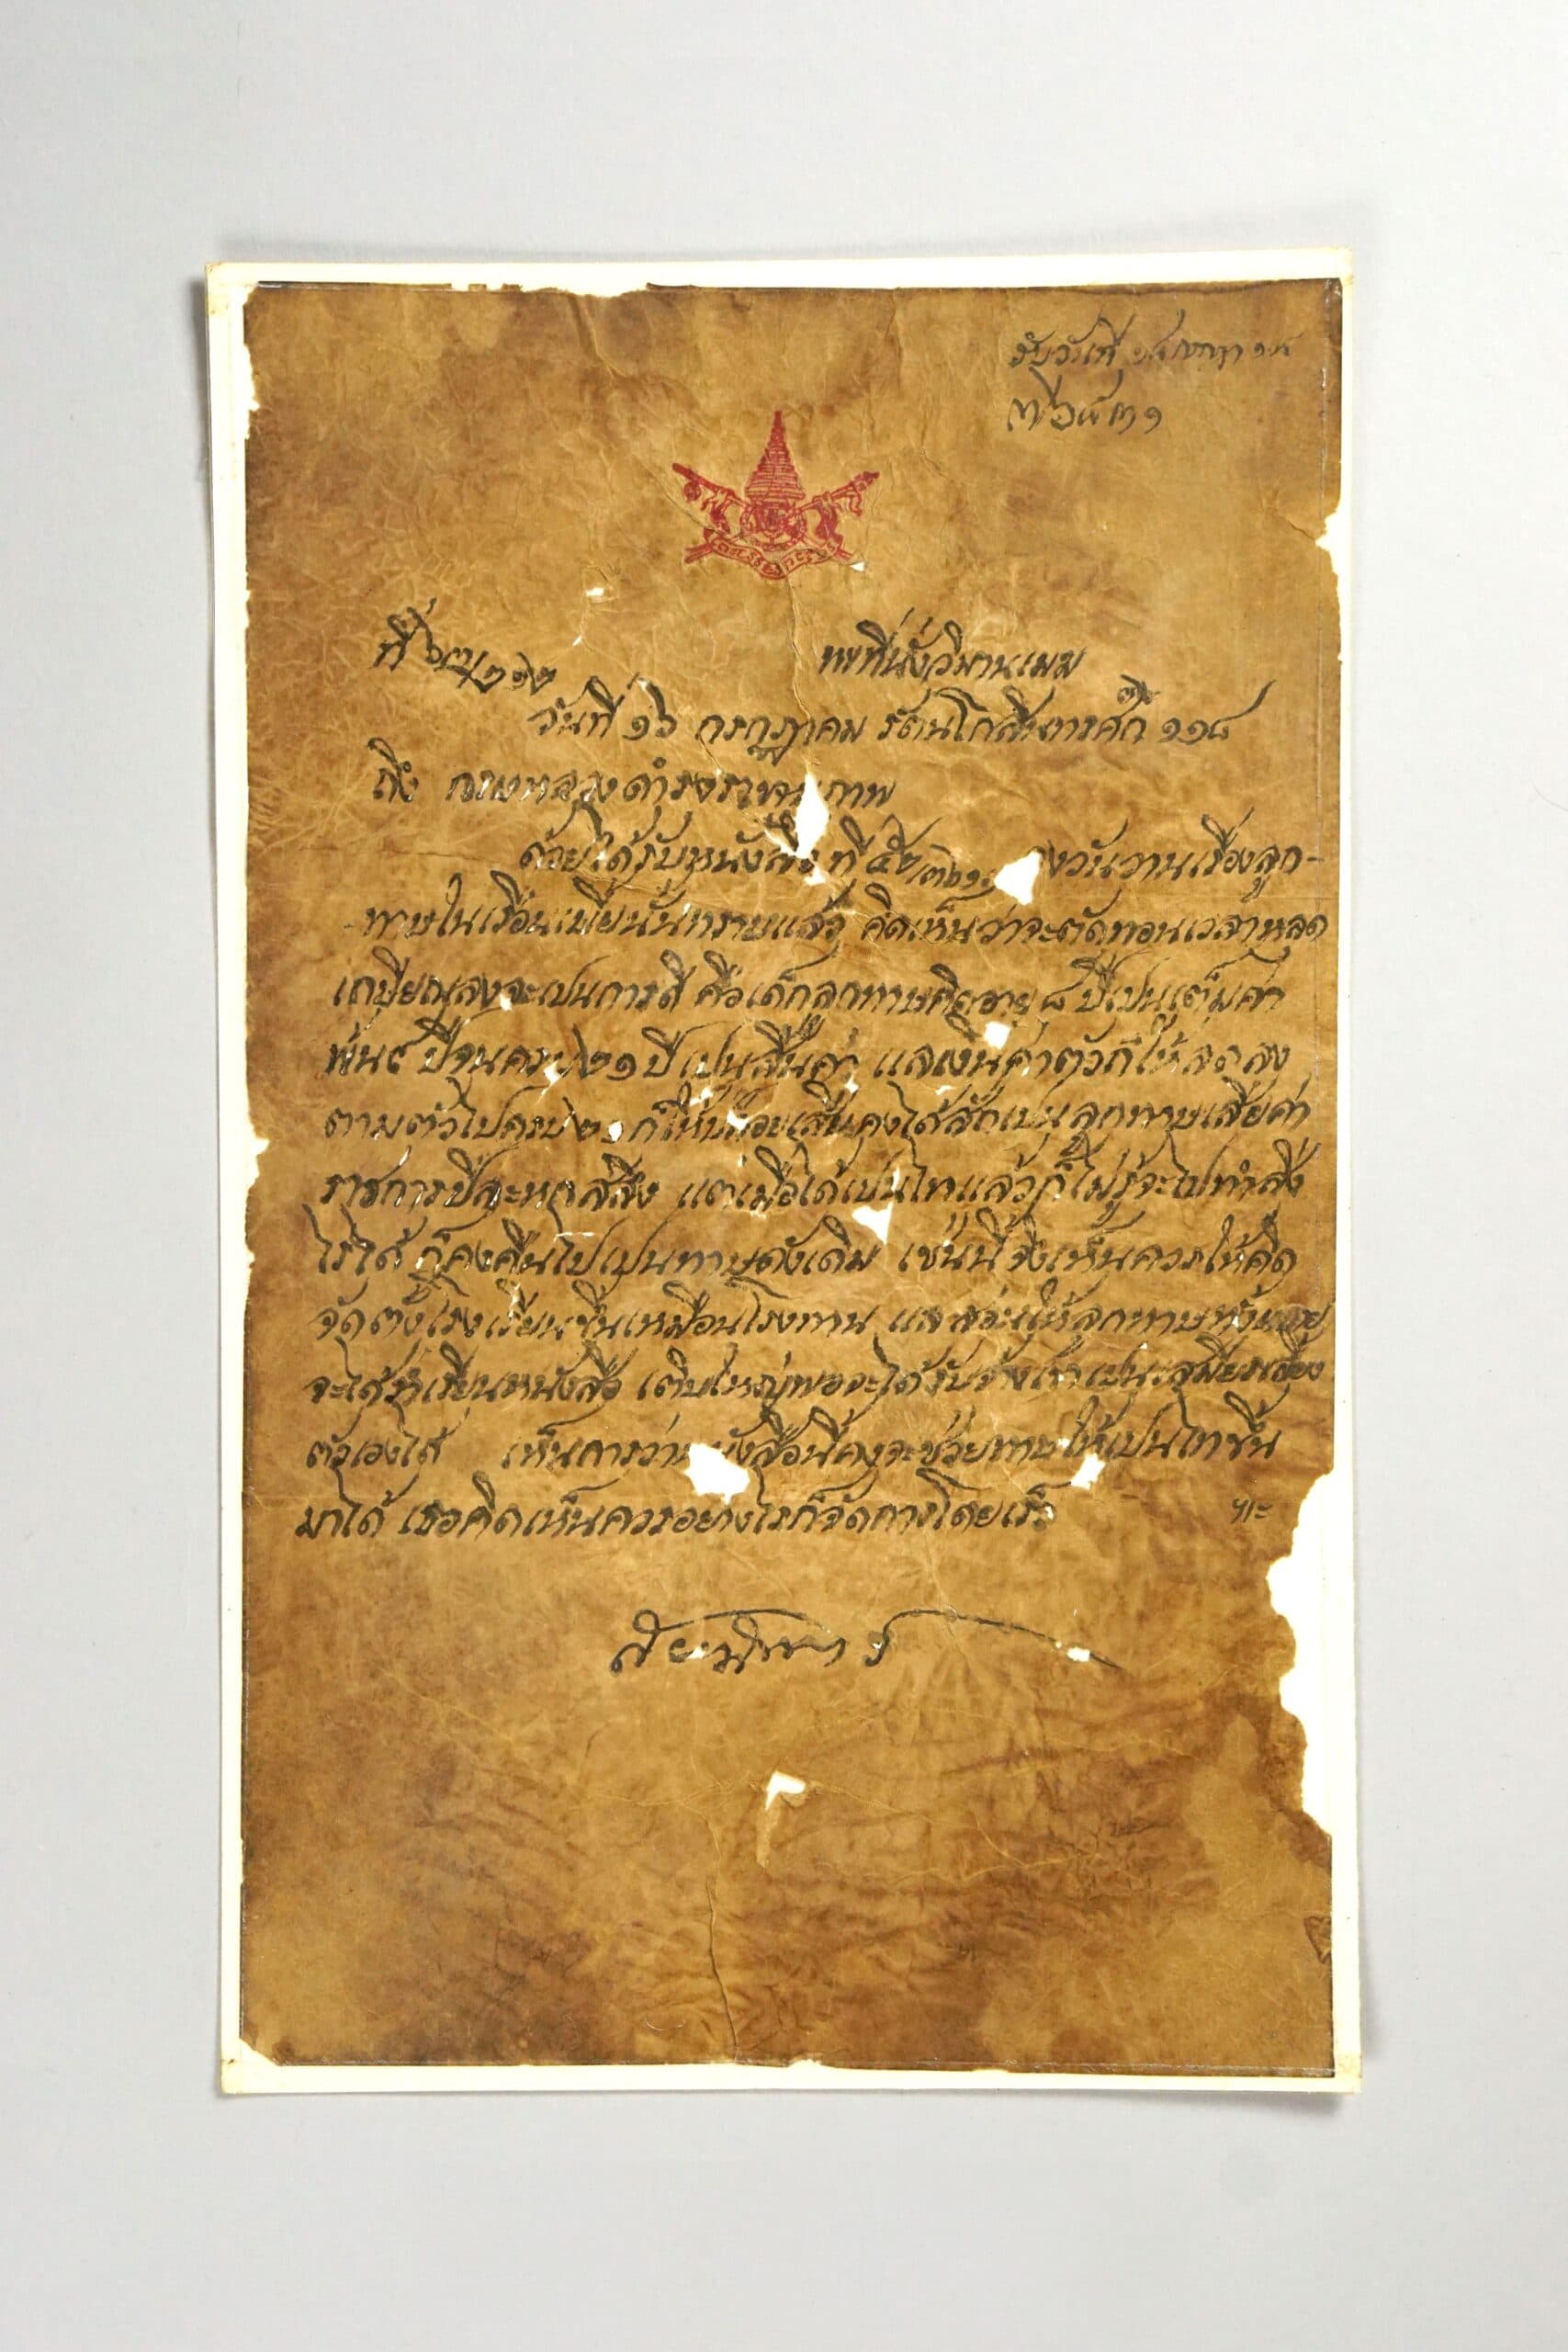 รับวันที่
ที่ ๖๓/๒๑๒ พที่นั่งวิมานเมฆ
วันที่ ๑๖ กรกฎาคม รัตนโกสินทรศก ๑๑๘
ถึง กรมหลวงดำรงราชานุภาพ
ด้วยได้รับหนังสือ ที่ วันวานเรื่องลูก-
ทาษในเรือนเบี้ยนั้นทราบแล้ว คิดเห็นว่าจะตัดทอนเวลาหลุด
เกษียณลงจะเปนการดี คือเด็กลูกทาษคิดอายุ ๘ ปีเปนเต็มค่า
พ้น ๘ ปีจนครบ ๒๑ ปี เปนสิ้นค่า แลเงินค่าตัวก็ให้ลดลง
ตามตัวไปครบ ๒๑ ก็ให้ปล่อยเสีย คงได้สักเปนลูกทาษเสียค่า
ราชการปีละหกสลึง แต่เมื่อได้เปนไทแล้วก็ไม่รู้จะไปทำสิ่ง
ไรได้ ก็คงคืนไปเปนทาษดังเดิม เช่นนี้จึงเห็นควรให้คิด
จัดตั้งโรงเรียนขึ้นเหมือนโรงทาน แลสอนให้ลูกทาษทั้งหลาย
จะได้ร่ำเรียนหนังสือ เติบใหญ่พอจะได้รับจ้างเขาเปนเสมียนเลี้ยง
ตัวเองได้ เห็นการว่าหนังสือนี้คงจะช่วยทาษให้เปนไทขึ้น
มาได้ เธอคิดเห็นควรอย่างไรก็จัดการโดยเร็ว
สยามินทร์